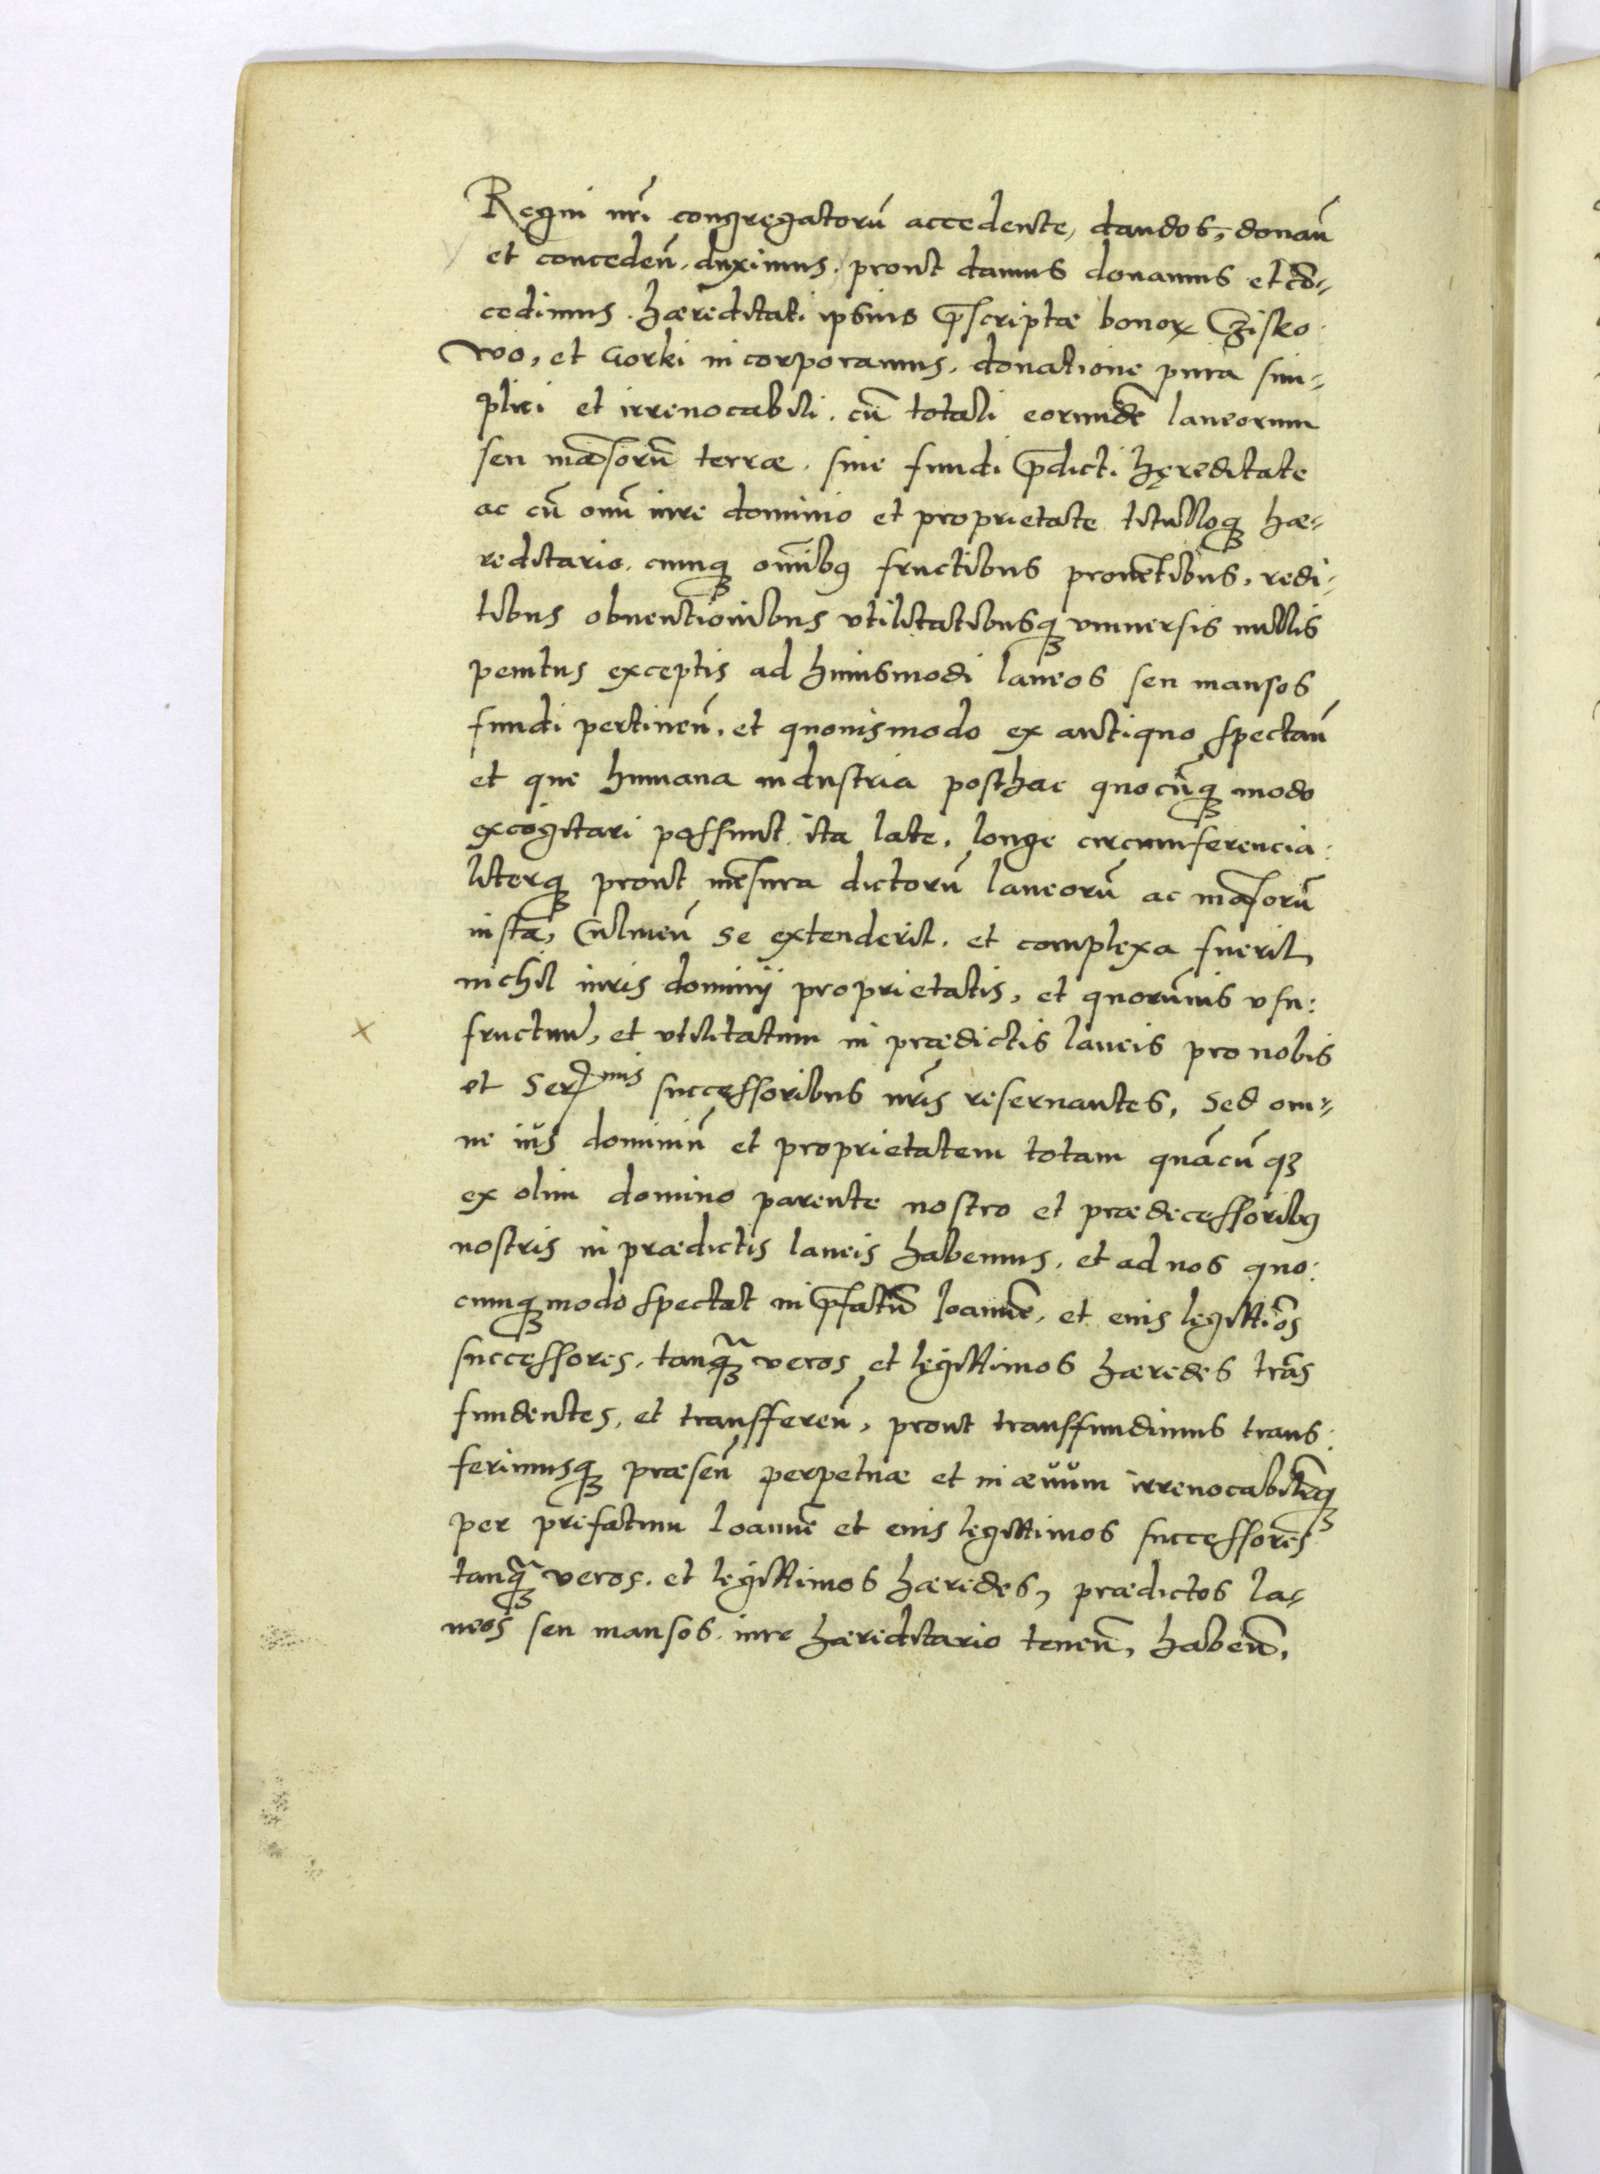 Regni nr̃i congregatorũ accedente, dandos, donañ
et concedeñ. duximus. prout damus donamus et cõ-
cedimus. hæreditati ipsius p̃scriptæ bonoꝝ Cziſko
wo, et Gorki incorporamus, donatione pura sim-
plici et irreuocabili. cũ totali eorundẽ laneorum
seu mãſorũ terræ. siue fundi p̃dicti hęreditate
ac cũ omĩ iure dominio et proprietate titulloqꝫ hæ-
reditario. cumqꝫ omĩbꝰ fructibus prouẽtibus, redi-
tibus obuentionibus vtilitatibusqꝫ vniuersis nullis
penitus exceptis ad huiusmodi laneos seu mansos
fundi pertineñ. et quouismodo ex antiquo spectañ
et que humana industria posthac quocũqꝫ modo
excogitari poſſunt ita late, longe circumferencia:
literqꝫ prout mẽſura dictorũ laneorũ ac mãſorũ
iusta, Culmeñ se extenderit. et complexa fuerit,
nichil iuris dominij proprietatis, et quorũuis vſu:
fructuũ, et vtilitatum in prædictis laneis pro nobis
et Ser^mis succeſſoribus nr̃is reseruantes, Sed om-
ne ius dominiũ et proprietatem totam quãcũqꝫ
ex olim domino parente nostro et prædeceſſoribꝰ
nostris in prædictis laneis habemus. et ad nos quo:
cumqꝫ modo spectat in p̃fatũ Ioannẽ, et eius legittĩos
succeſſores. tanqꝫ̃ veros et legittimos hæredes trãs
fundentes, et transffereñ, prout transffundimus trans:
ferimusqꝫ præseñ perpetuæ et in ævum irreuocabilẽqꝫ
per præfatum Ioannẽ et eius legittimos succeſſores
tanqꝫ̃ veros. et legittimos hæredes, prædictos la-
neos seu mansos iure hæreditario teneñ, habeñ,